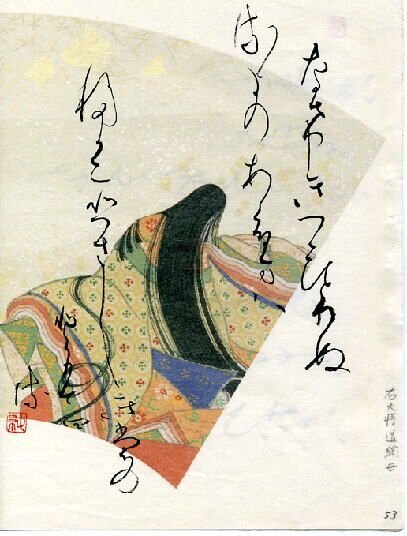 なけきつゝひとりぬ
るよのあくるまは
いかにひさしき
ものとかは
しる
右大将道綱母
53